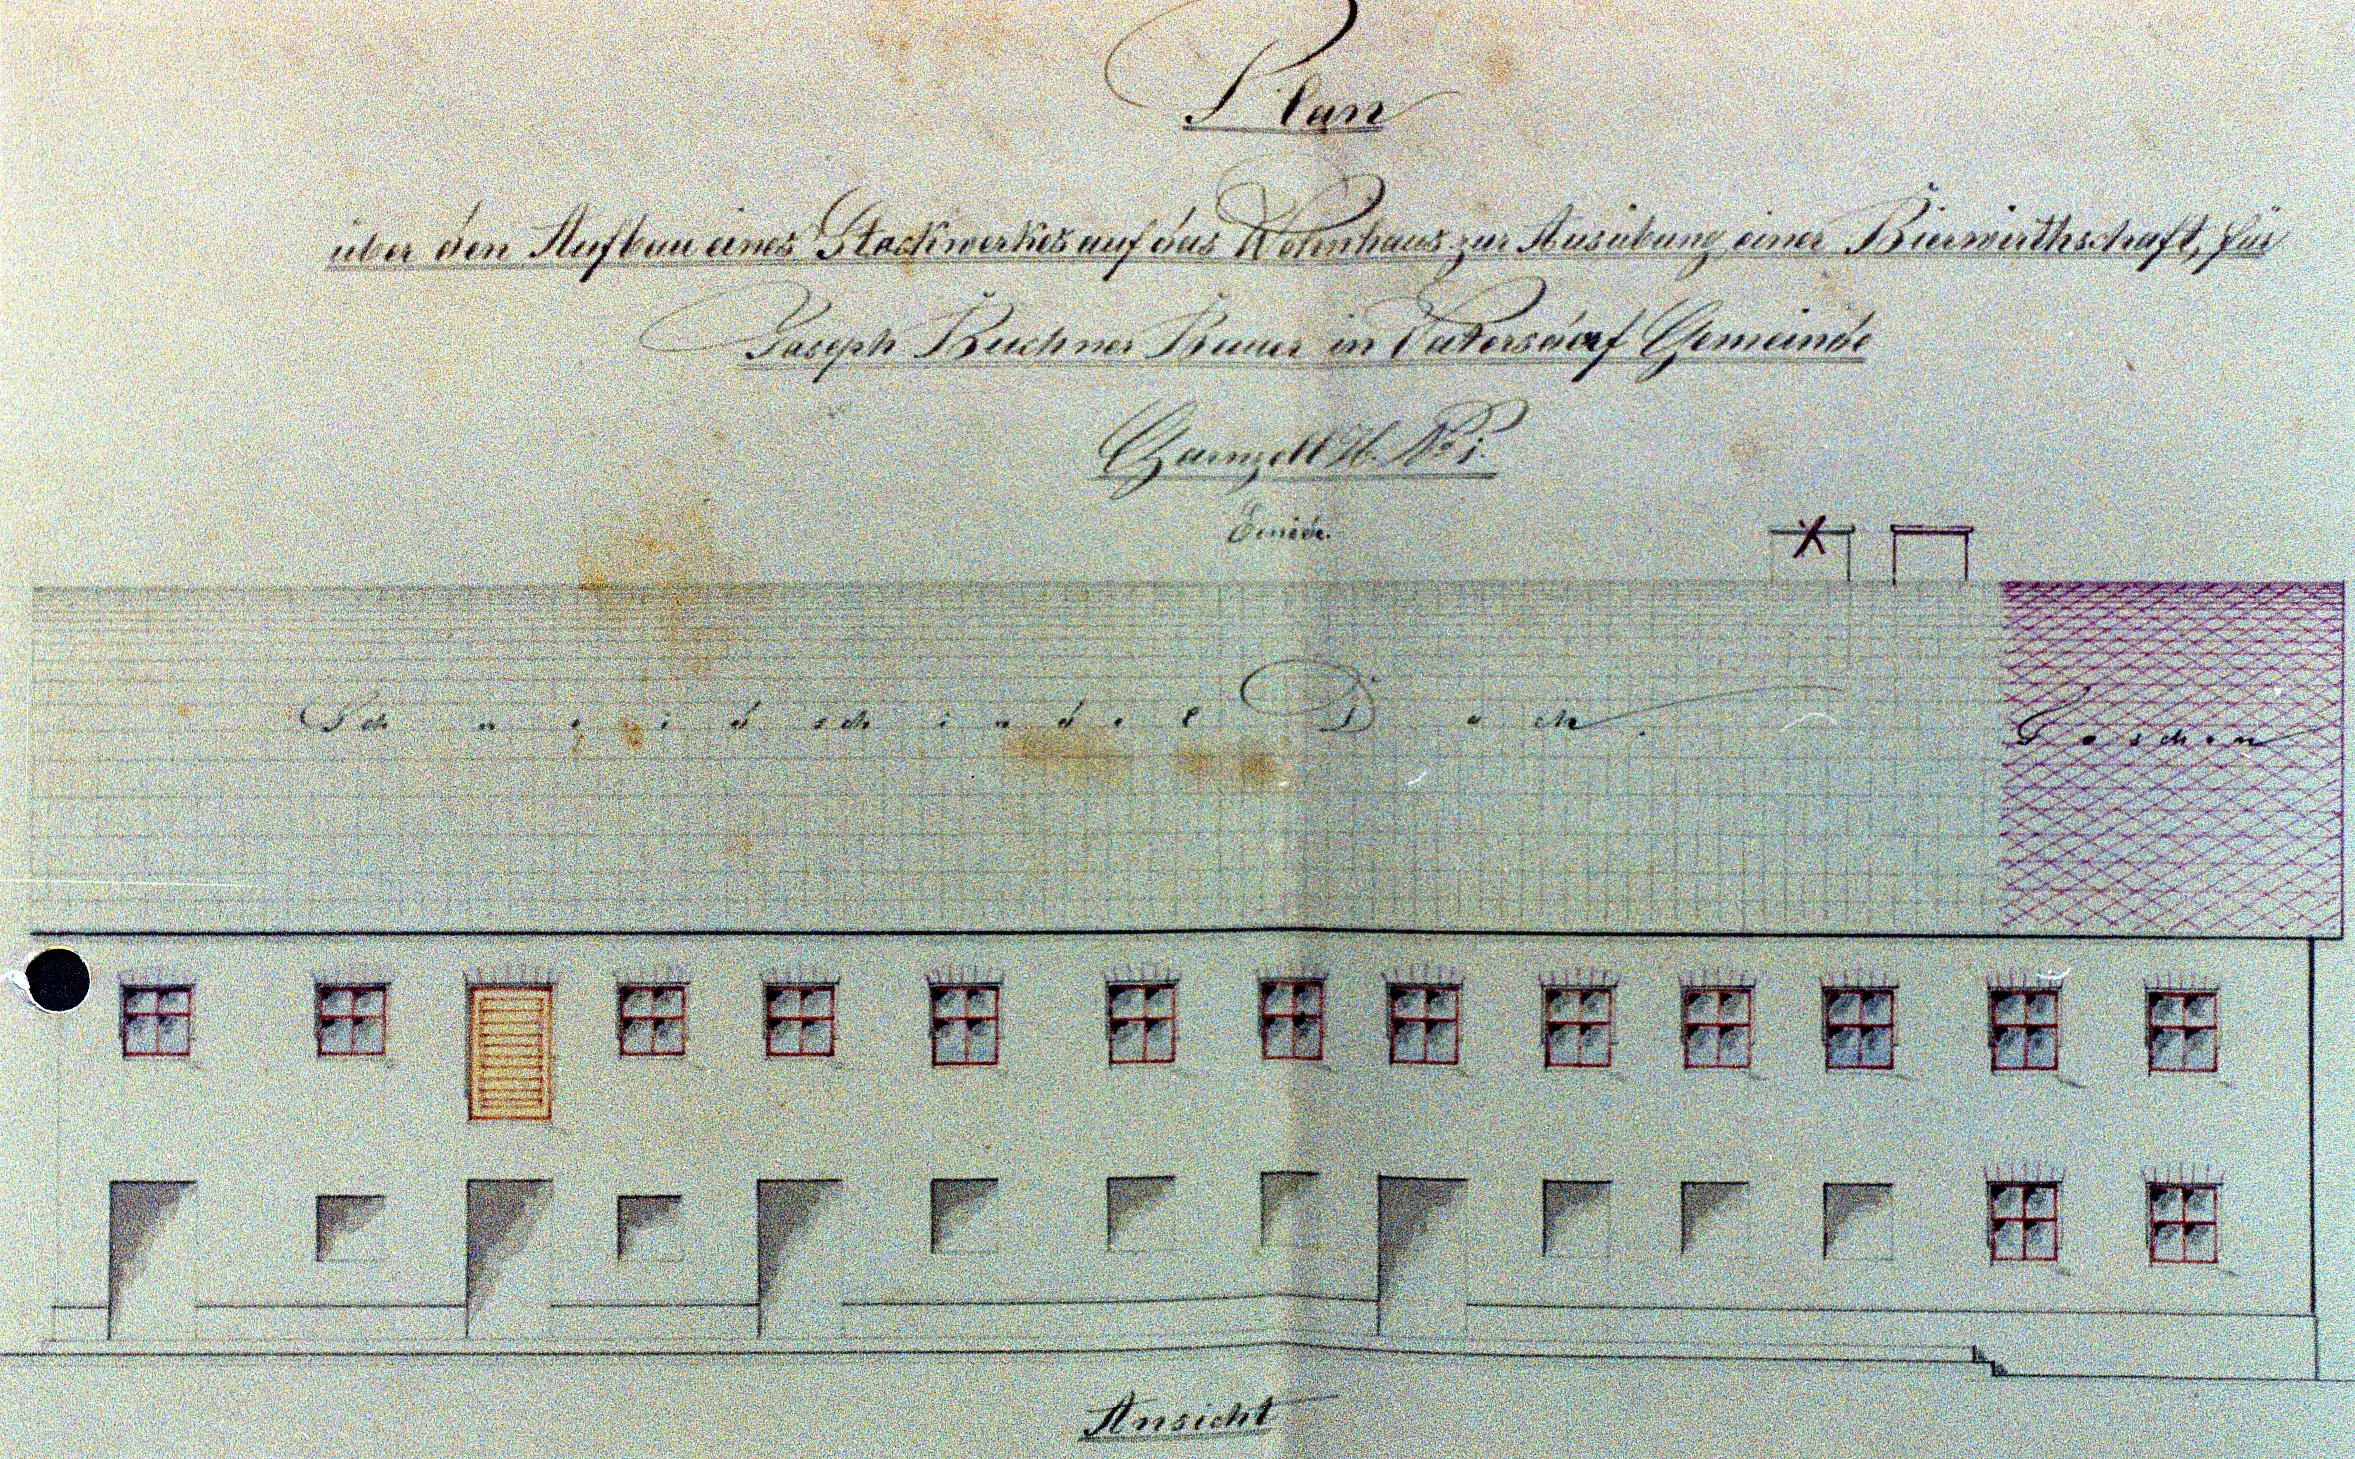 Plan
über den Aufbau eines Stockwerkes auf das Wohnhaus zur Ausübung einer Bierwirthschaft, für
Joseph Buchner Bauer in Gemeinde
H. No 1.
Einöde.
Schneidschindel Dach.
Taschen
Ansicht